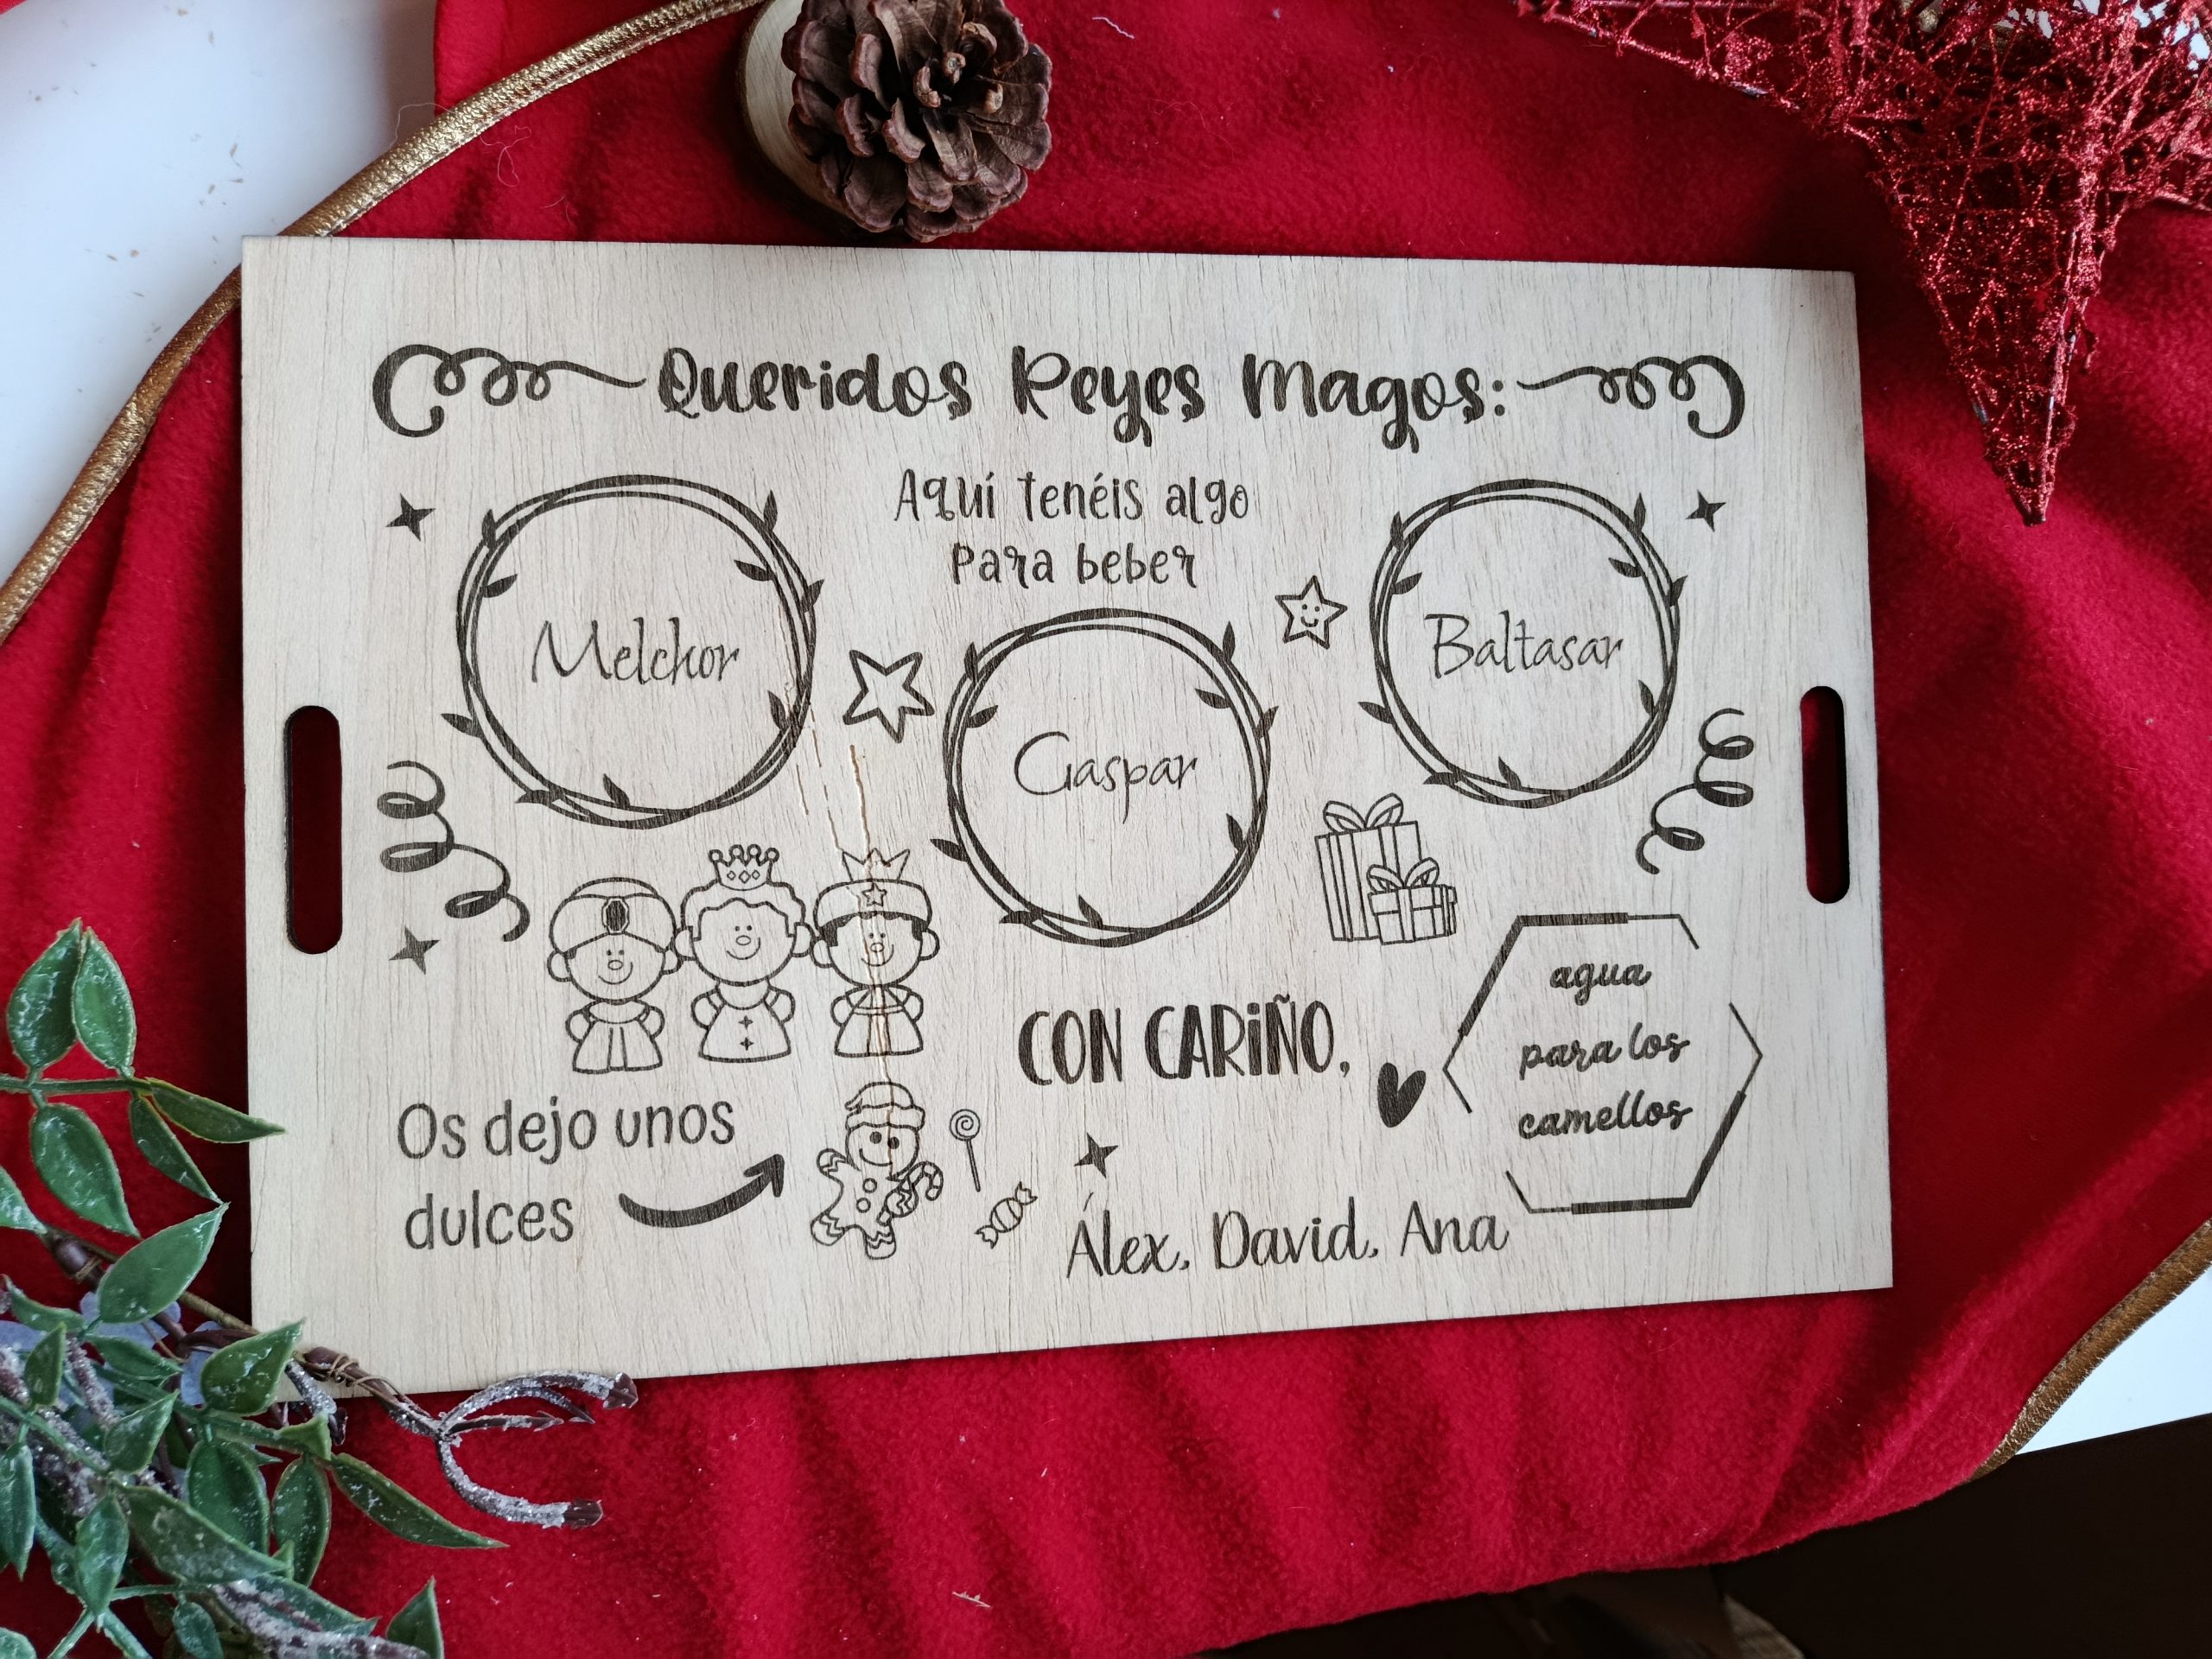 Queridos Reyes Magos:
Aquí tenéis algo
para beber
Melchor
Gaspar
Baltasar
agua
para los
camellos
CON CARiÑO,
Os dejo unos
dulces
Álex, David, Ana